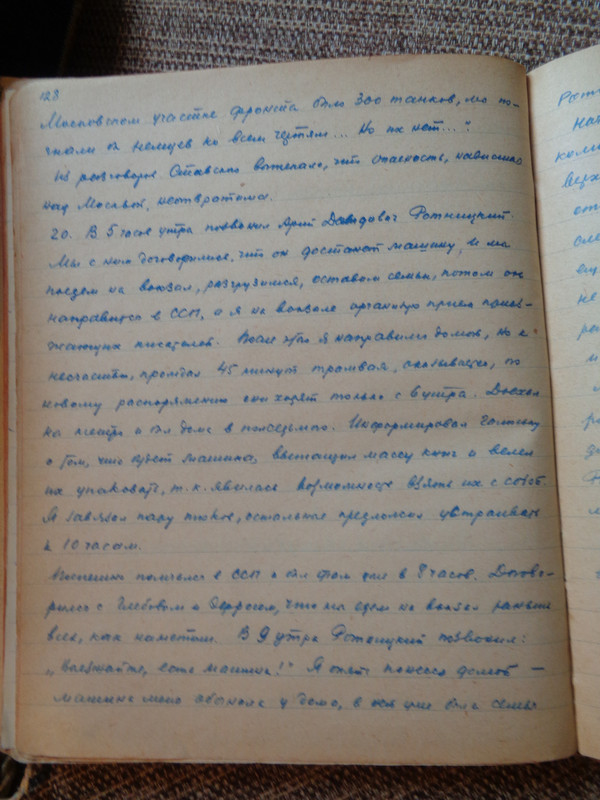 128
Московском участке фронта было 300 танков, мы по-
гнали б немцев ко всем чертям... Но их нет..."
Из разговора Ставского вытекало, что опасность, нависшая
над Москвой, неотвратима.
20. В 5 часов утра позвонил Арий Давидович Ротницкий.
Мы с ним договорились, что он достанет машину, и мы
поедем на вокзал, разгрузимся, оставим семьи, потом он
направится в ССП, а я на вокзале организую прием приез-
жающих писателей. После этого я направился домой, но к
несчастью, прождал 45 минут трамвая, оказывается, по
новому распоряжению они ходят только с 6 утра. Доехал
на метро и был дома в полседьмого. Информировал Галюську
о том, что будет машина, вытащил массу книг и велел
их упаковать, т.к. явилась возможность взять их с собой.
Я завязал пару тюков, остальное предложил
к 10 часам.
помчался в ССП и был там уже в 8 часов. Догово-
рился с Глебовым и что мы едем на вокзал раньше
всех, как наметили. В 9 утра Ротницкий позвонил:
„Выезжайте, есть машина!" Я опять понесся домой —
машина меня у дома, в ней уже была семья